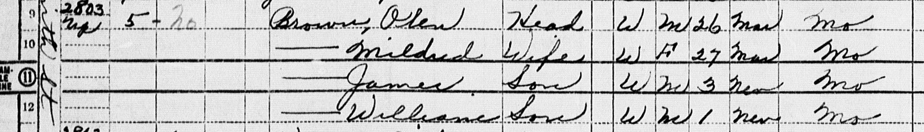 9 2803 5 - 20 Brown, Olen Head W M 26 Mar Mo
10 Up Mildred Wife W F 27 Mar Mo
11 James Son W M 3 Nev Mo
12 William Son W M 1 Nev Mo